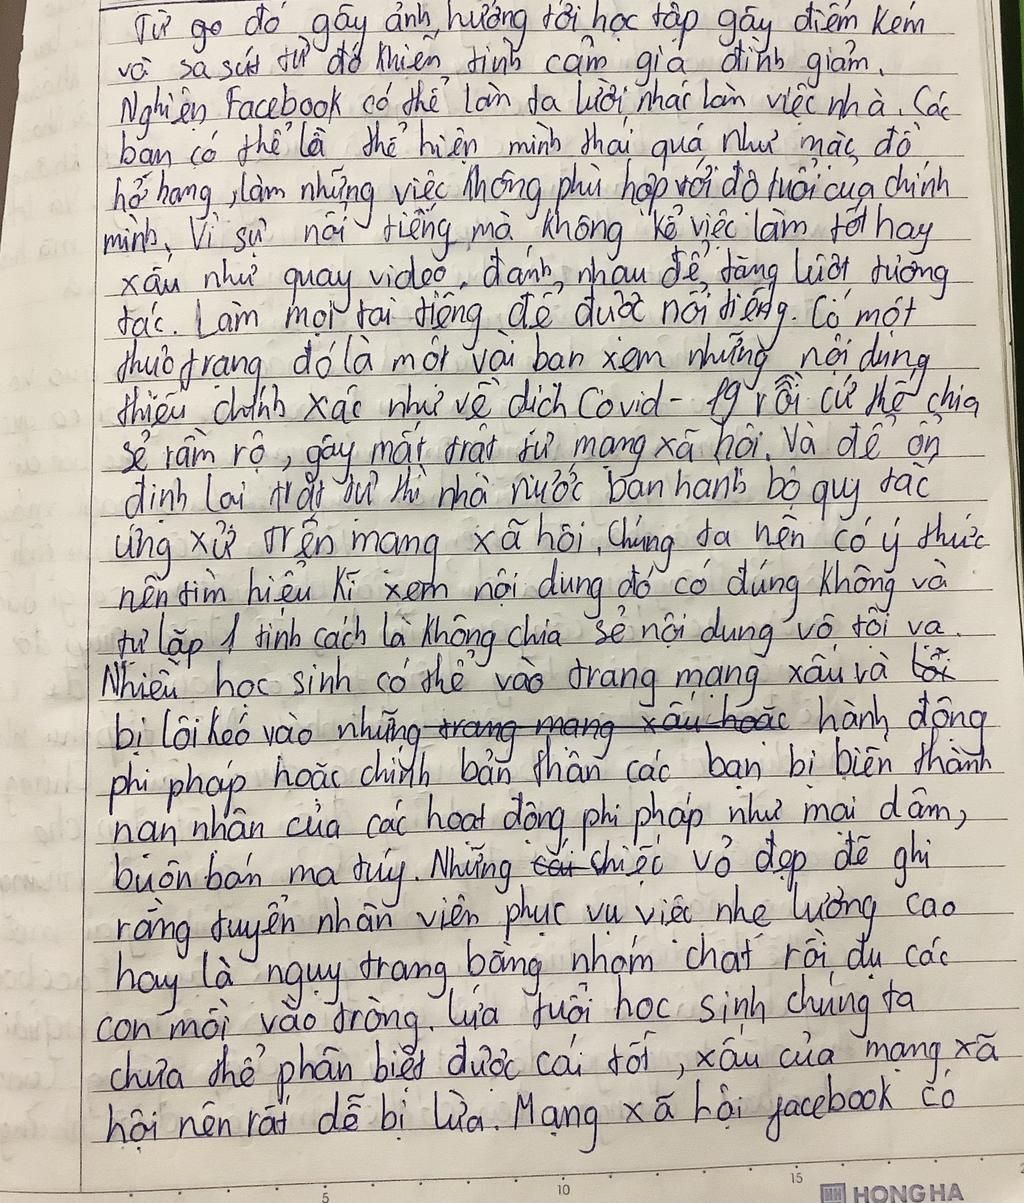 Từ go đó gây ảnh hưởng tới học tập gây điểm kém
và sa sút từ đó khiến tình cảm gia đình giảm.
Nghiện Facebook có thể làm ta lười nhác làm việc nhà. Các
bạn có thể là thể hiện mình thái quá như mặc đồ
hở hang, làm những việc không phù hợp với độ tuổi của chính
mình. Vì sự nổi tiếng mà không kể việc làm tốt hay
xấu như quay video, đánh nhau để tăng lượt tương
tác. Làm mọi tai tiếng để được nổi tiếng. Có một
thực trạng đó là một vài bạn xem những nội dung
thiếu chính xác như về dịch Covid-19 rồi cứ thế chia
sẻ rầm rộ, gây mất trật tự mạng xã hội. Và để ổn
định lại trật tự thì nhà nước ban hành bộ quy tắc
ứng xử trên mạng xã hội. Chúng ta nên có ý thức
nên tìm hiểu kĩ xem nội dung đó có đúng không và
tự lập 1 tính cách là không chia sẻ nội dung vô tội vạ.
Nhiều học sinh có thể vào trang mạng xấu và
bị lôi kéo vào những trang mạng xấu hoặc hành động
phi pháp hoặc chính bản thân các bạn bị biến thành
nạn nhân của các hoạt động phi pháp như mại dâm,
buôn bán ma túy. Những cái chiếc vỏ đẹp đẽ ghi
rằng tuyển nhân viên phục vụ việc nhẹ lương cao
hay là ngụy trang bằng nhóm chat rồi dụ các
con mồi vào tròng. Lứa tuổi học sinh chúng ta
chưa thể phân biệt được cái tốt, xấu của mạng xã
hội nên rất dễ bị lừa. Mạng xã hội facebook có
5 10 15
HH HONG HA